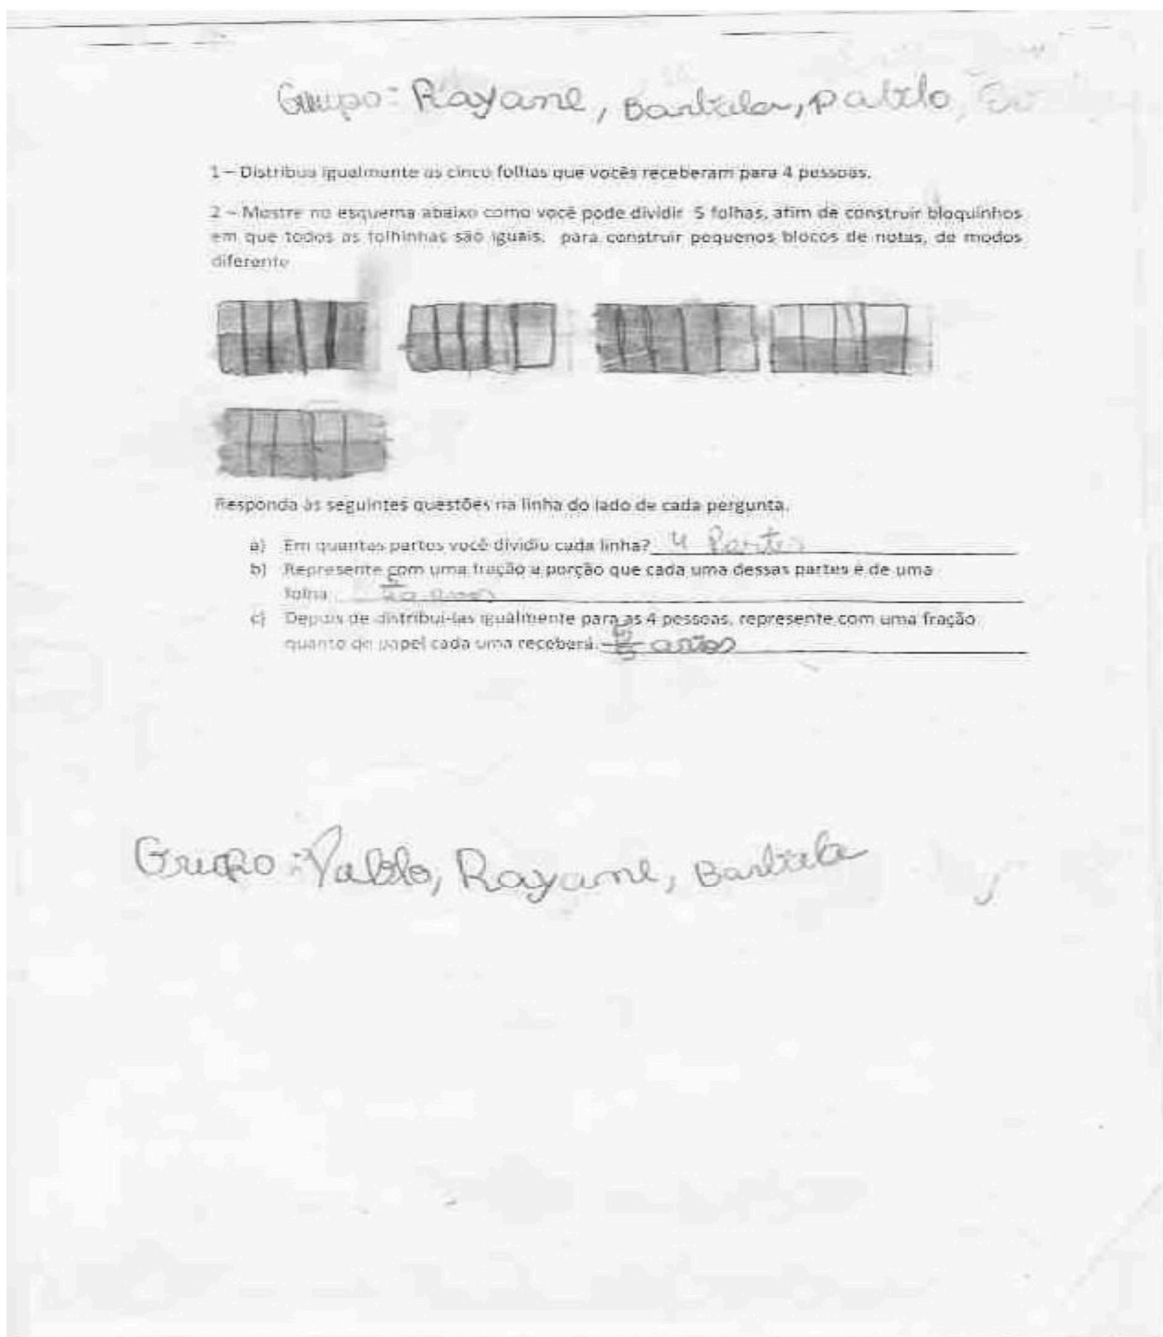 Grupo: Rayane, Barbara, Pablo,
1 – Distribua igualmente as cinco folhas que vocês receberam para 4 pessoas.
2 – Mostre no esquema abaixo como você pode dividir 5 folhas, afim de construir bloquinhos
em que todos as folhinhas são iguais. para construir pequenos blocos de notas, de modos
diferente
Responda às seguintes questões na linha do lado de cada pergunta.
a) Em quantas partes você dividiu cada linha? 4 Partes
b) Represente com uma fração a porção que cada uma dessas partes é de uma
folha
c) Depois de distribuí-las igualmente para as 4 pessoas, represente com uma fração
quanto de papel cada uma receberá. avos
Grupo: Pablo, Rayane,